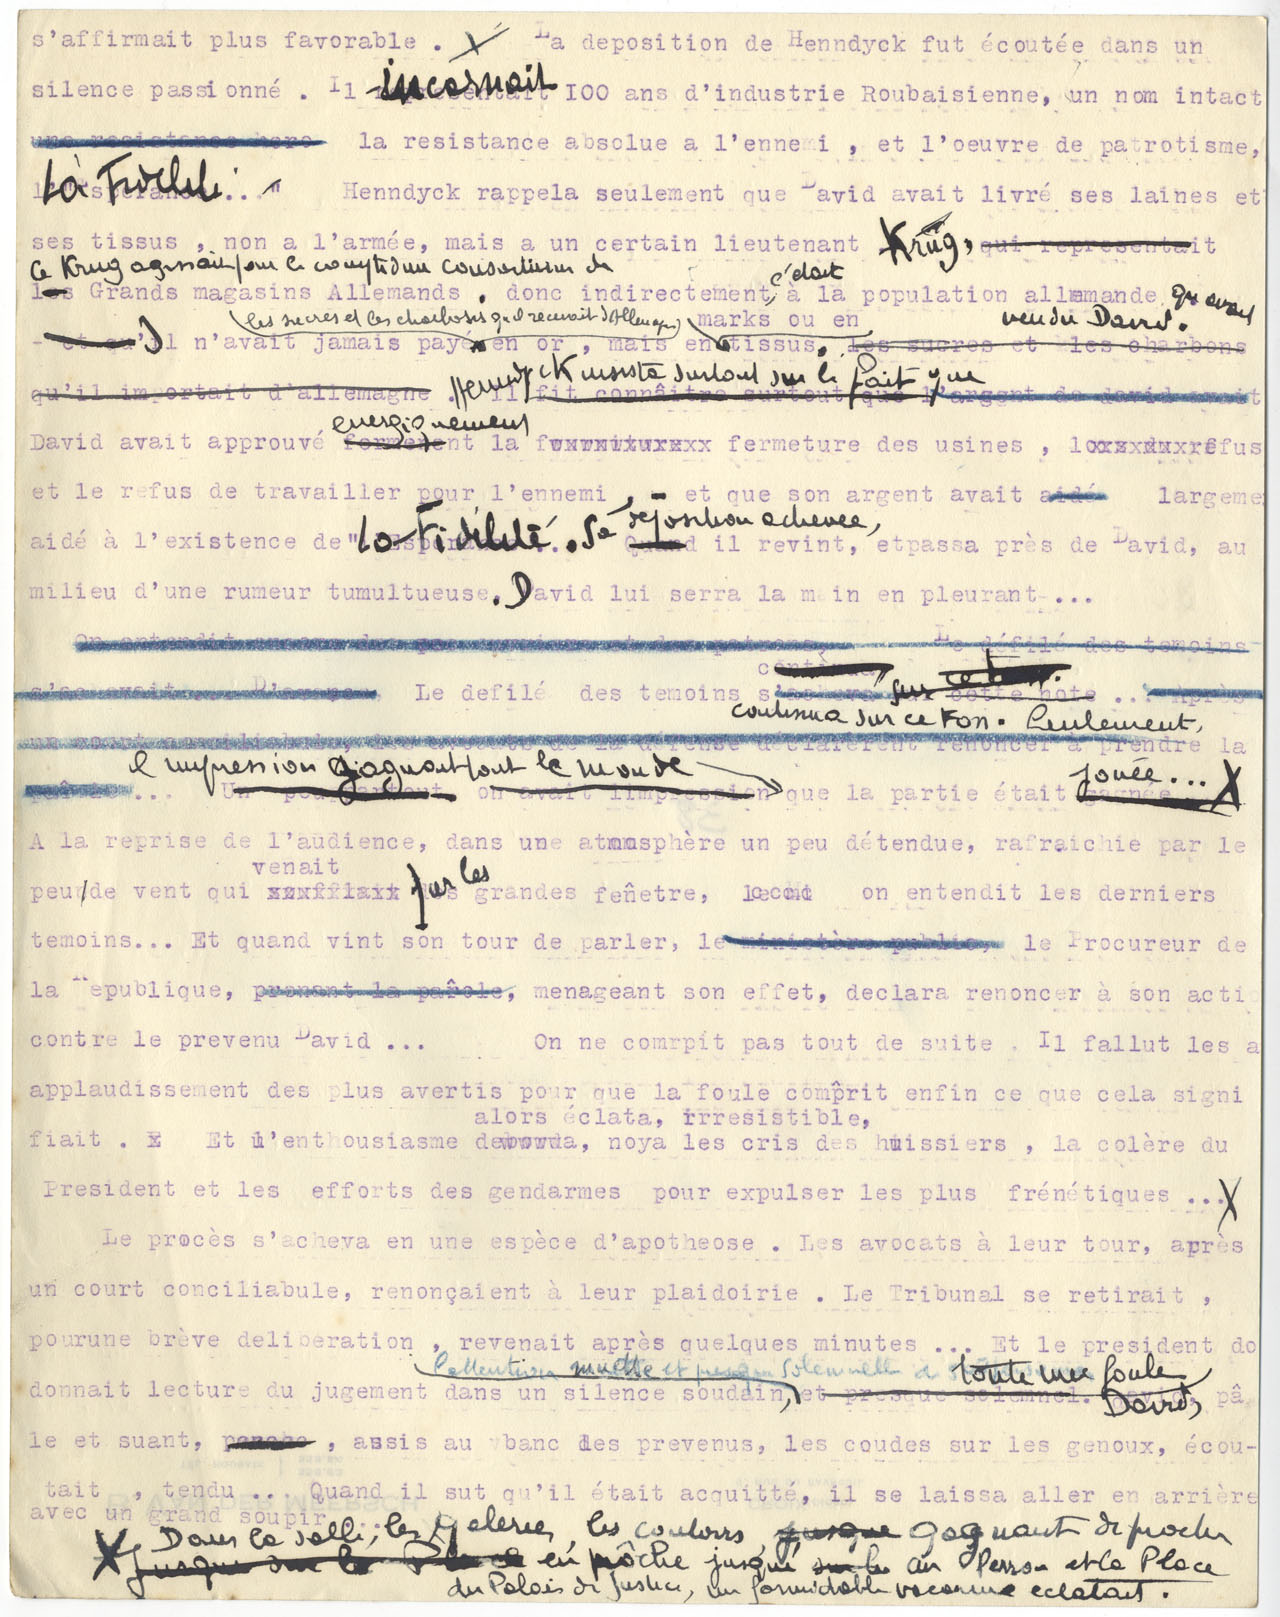 s'affirmait plus favorable . La deposition de Henndyck fut écoutée dans un
silence passionné . Il incarnait 100 ans d'industrie Roubaisienne, un nom intact
une resistance hero la resistance absolue a l'ennemi , et l'oeuvre de patrotisme,
La Fidélité ... " Henndyck rappela seulement que David avait livré ses laines et
ses tissus , non a l'armée, mais a un certain lieutenant Krüg, qui representait
Ce Krug agissait pour le compte d'un consortium de
c'était
les Grands magasins Allemands . donc indirectement, à la population allemande qu'avait
vendu David.
(les sucres et les charbons qu'il recevait d'Allemagne) marks ou en
- et qu'il n'avait jamais payé en or , mais en tissus, les sucres et les charbons
Henndyck insista surtout sur le fait que
qu'il importait d'allemagne . Il fit connaître surtout que l'argent de david avait
energiquement
David avait approuvé fermement la fourniturexx fermeture des usines , lors du refus
et le refus de travailler pour l'ennemi , - et que son argent avait aidé largeme
La Fidélité. Sa deposition achevée,
aidé à l'existence de " ... Quand il revint, etpassa près de David, au
milieu d'une rumeur tumultueuse. David lui serra la main en pleurant ...
On entendit encore des et des patrons, Le défilé des temoins
continua
s'en avait ... D'autres Le defilé des temoins s'acheva sur cette note ... Après
continua sur ce ton. Seulement,
un court conciliabule, les avocats de la défense déclarèrent renoncer à prendre la
l'impression gagnait tout le monde jouée...X
parole ... Un peu partout on avait l'impression que la partie était gagnée
A la reprise de l'audience, dans une atmosphère un peu détendue, rafraichie par le
venait par les
peu de vent qui soufflait des grandes fenêtre, on entendit les derniers
temoins... Et quand vint son tour de parler, le ministère public, le Procureur de
la Republique, prenant la parole, menageant son effet, declara renoncer à son actio
contre le prevenu David ... On ne comrpit pas tout de suite . Il fallut les a
applaudissement des plus avertis pour que la foule comprit enfin ce que cela signi
alors éclata, irresistible,
fiait . x Et l'enthousiasme deborda, noya les cris des huissiers , la colère du
President et les efforts des gendarmes pour expulser les plus frénétiques ...X
Le procès s'acheva en une espèce d'apotheose . Les avocats à leur tour, après
un court conciliabule, renonçaient à leur plaidoirie . Le Tribunal se retirait ,
pourune brève deliberation , revenait après quelques minutes ... Et le president do
l'attention muette et presque solennelle de toute une foule
donnait lecture du jugement dans un silence soudain, et presque solemnel. David, pâ
David,
le et suant, penché , assis au banc des prevenus, les coudes sur les genoux, écou-
tait , tendu ... Quand il sut qu'il était acquitté, il se laissa aller en arrière
avec un grand soupir ...
X Dans la salle, les galeries, les couloirs jusque gagnant de proche
jusque sur la Place en proche jusqu'au Perron et la Place
du Palais de Justice, un formidable vacarme eclatait.